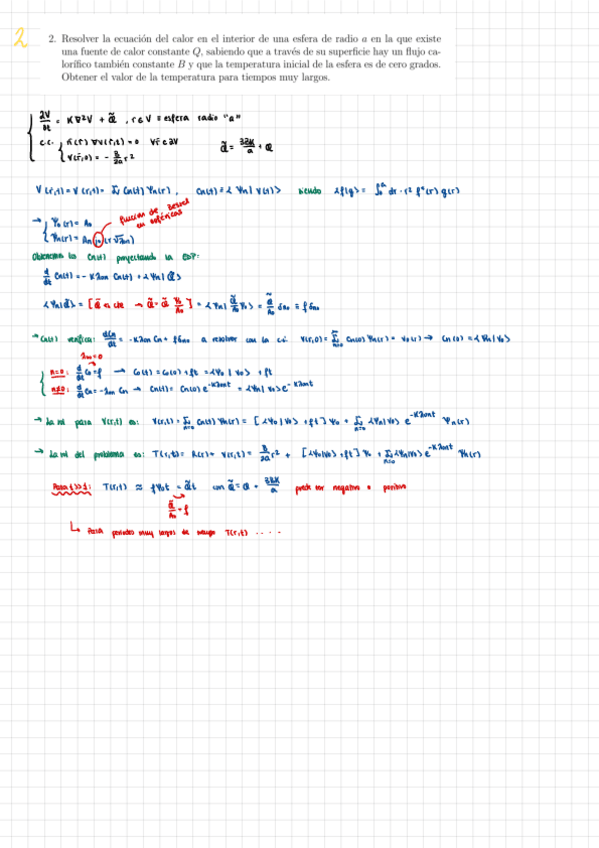 2
2. Resolver la ecuación del calor en el interior de una esfera de radio a en la que existe
una fuente de calor constante Q, sabiendo que a través de su superficie hay un flujo ca-
lorífico también constante B y que la temperatura inicial de la esfera es de cero grados.
Obtener el valor de la temperatura para tiempos muy largos.
∂V/∂t = K∇²V + Q̃ , r∈V ≡ esfera radio "a"
c.c. n̂(r)·∇V(r,t) = 0 ∀r̄∈∂V
V(r̄,0) = - B/2a r² Q̃ = 3BK/a + Q
V(r̄,t) = V(r,t) = Σ Cn(t) Ψn(r) , Cn(t) = <Ψn|V(t)> siendo <f|g> = ∫₀ᵃ dr · r² f*(r) g(r)
→ Ψ₀(r) = A₀ función de Bessel
Ψn(r) = An j₀(r√λ₀n) en esféricas
Obtenemos los Cn(t) proyectando la EDP:
d/dt Cn(t) = -Kλ₀n Cn(t) + <Ψn|Q̃>
<Ψn|Q̃> = [Q̃ es cte → Q̃ = Q̃ Ψ₀/A₀] = <Ψn| Q̃/A₀ Ψ₀> = Q̃/A₀ δn₀ ≡ f δn₀
→ Cn(t) verifica: dCn/dt = -Kλ₀n Cn + f δn₀ a resolver con la c.i. V(r,0) = Σ Cn(0) Ψn(r) = V₀(r) → Cn(0) = <Ψn|V₀>
λ₀₀=0
n=0: d/dt C₀ = f → C₀(t) = C₀(0) + ft = <Ψ₀|V₀> + ft
n≠0: d/dt Cn = -λ₀n Cn → Cn(t) = Cn(0) e^-Kλ₀nt = <Ψn|V₀> e^-Kλ₀nt
→ La sol para V(r,t) es: V(r,t) = Σ Cn(t) Ψn(r) = [<Ψ₀|V₀> + ft] Ψ₀ + Σ <Ψn|V₀> e^-Kλ₀nt Ψn(r)
→ La sol del problema es: T(r,t) = R(r) + V(r,t) = B/2a r² + [<Ψ₀|V₀> + ft] Ψ₀ + Σ <Ψn|V₀> e^-Kλ₀nt Ψn(r)
Para t>>1: T(r,t) ≈ f Ψ₀ t = Q̃t con Q̃ = Q + 3BK/a puede ser negativo o positivo
Q̃/A₀ = f
↳ Para periodos muy largos de tiempo T(r,t) ....